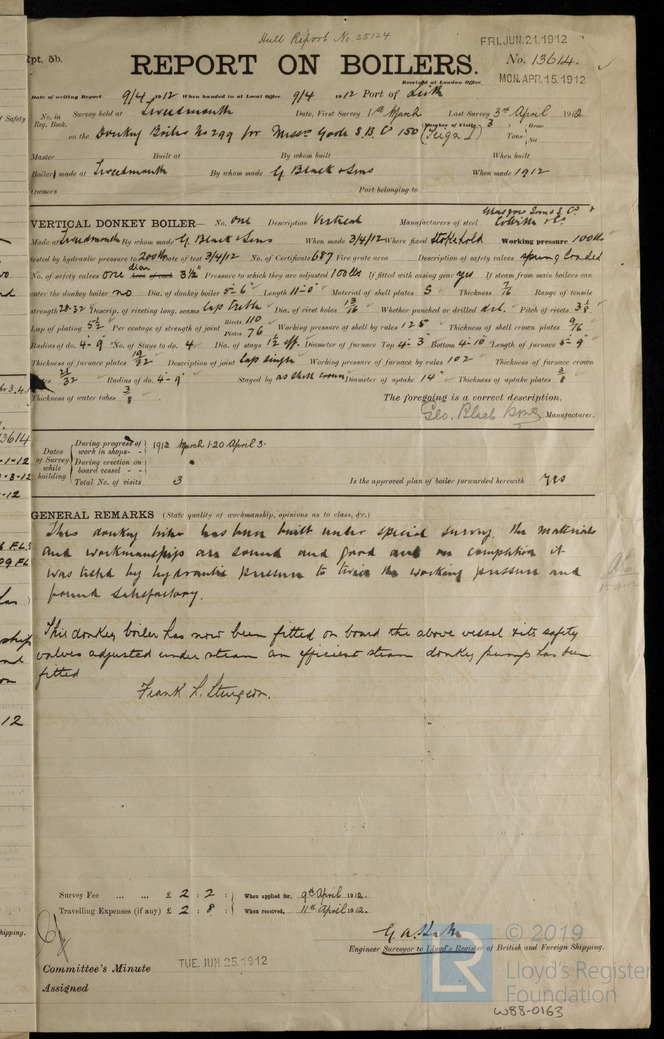 Hull Report No 25124
FRI. JUN. 21. 1912
Rpt. 5b.
REPORT ON BOILERS.
No. 13614.
Received at London Office
MON. APR. 15. 1912
Date of writing Report 9/4 1912 When handed in at Local Office 9/4 1912 Port of Leith
No. in Survey held at Tweedmouth Date, First Survey 1st March Last Survey 3rd April 1912
Reg. Book. on the Donkey Boiler No 299 for Messrs Goole S.B. Co 150 (Number of Visits 3) Tons { Gross Net
Master Built at By whom built When built
Boiler made at Tweedmouth By whom made G Black & Sons When made 1912
Owners Port belonging to
VERTICAL DONKEY BOILER— No. One Description Vertical Manufacturers of steel
Made at Tweedmouth By whom made G. Black & Sons When made 3/4/12 Where fixed Stokehold Working pressure 100 lbs
tested by hydraulic pressure to 200 lbs Date of test 3/4/12 No. of Certificate 687 Fire grate area Description of safety valves spring loaded
No. of safety valves one diam 3½" Pressure to which they are adjusted 100 lbs If fitted with easing gear yes If steam from main boilers can
enter the donkey boiler no Dia. of donkey boiler 5-6" Length 11-0" Material of shell plates S Thickness 7/16 Range of tensile
strength 28-32 Descrip. of riveting long. seams lap treble Dia. of rivet holes 13/16 Whether punched or drilled drd. Pitch of rivets 3⅛
Lap of plating 5½ Per centage of strength of joint Rivets 110 Plates 76 Working pressure of shell by rules 125 Thickness of shell crown plates 9/16
Radius of do. 4-9 No. of Stays to do. 4 Dia. of stays 1½ eff. Diameter of furnace Top 4-3 Bottom 4-10 Length of furnace 5-9
Thickness of furnace plates 19/32 Description of joint lap single Working pressure of furnace by rules 102 Thickness of furnace crown
plates 21/32 Radius of do. 4-9 Stayed by as shell crown Diameter of uptake 14" Thickness of uptake plates 3/8
Thickness of water tubes 3/8
The foregoing is a correct description,
Geo. Black & Sons Manufacturer.
Dates of Survey while building
During progress of work in shops - - 1912 March 1. 20 April 3.
During erection on board vessel - -
Total No. of visits 3 Is the approved plan of boiler forwarded herewith yes
GENERAL REMARKS (State quality of workmanship, opinions as to class, &c.)
This donkey boiler has been built under special survey. The materials
and workmanship are sound and good and on completion it
was tested by hydraulic pressure to twice the working pressure and
found satisfactory.
This donkey boiler has now been fitted on board the above vessel & its safety
valves adjusted under steam an efficient steam donkey pump has been
fitted
Frank L. Sturgeon.
Survey Fee ... ... £ 2 : 2 : When applied for, 9th April 1912.
Travelling Expenses (if any) £ 2 : 8 : When received, 11th April 1912.
Engineer Surveyor to Lloyd's Register of British and Foreign Shipping.
Committee's Minute TUE. JUN. 25. 1912
Assigned
© 2019
LR
Lloyd's Register
Foundation
W88-0163